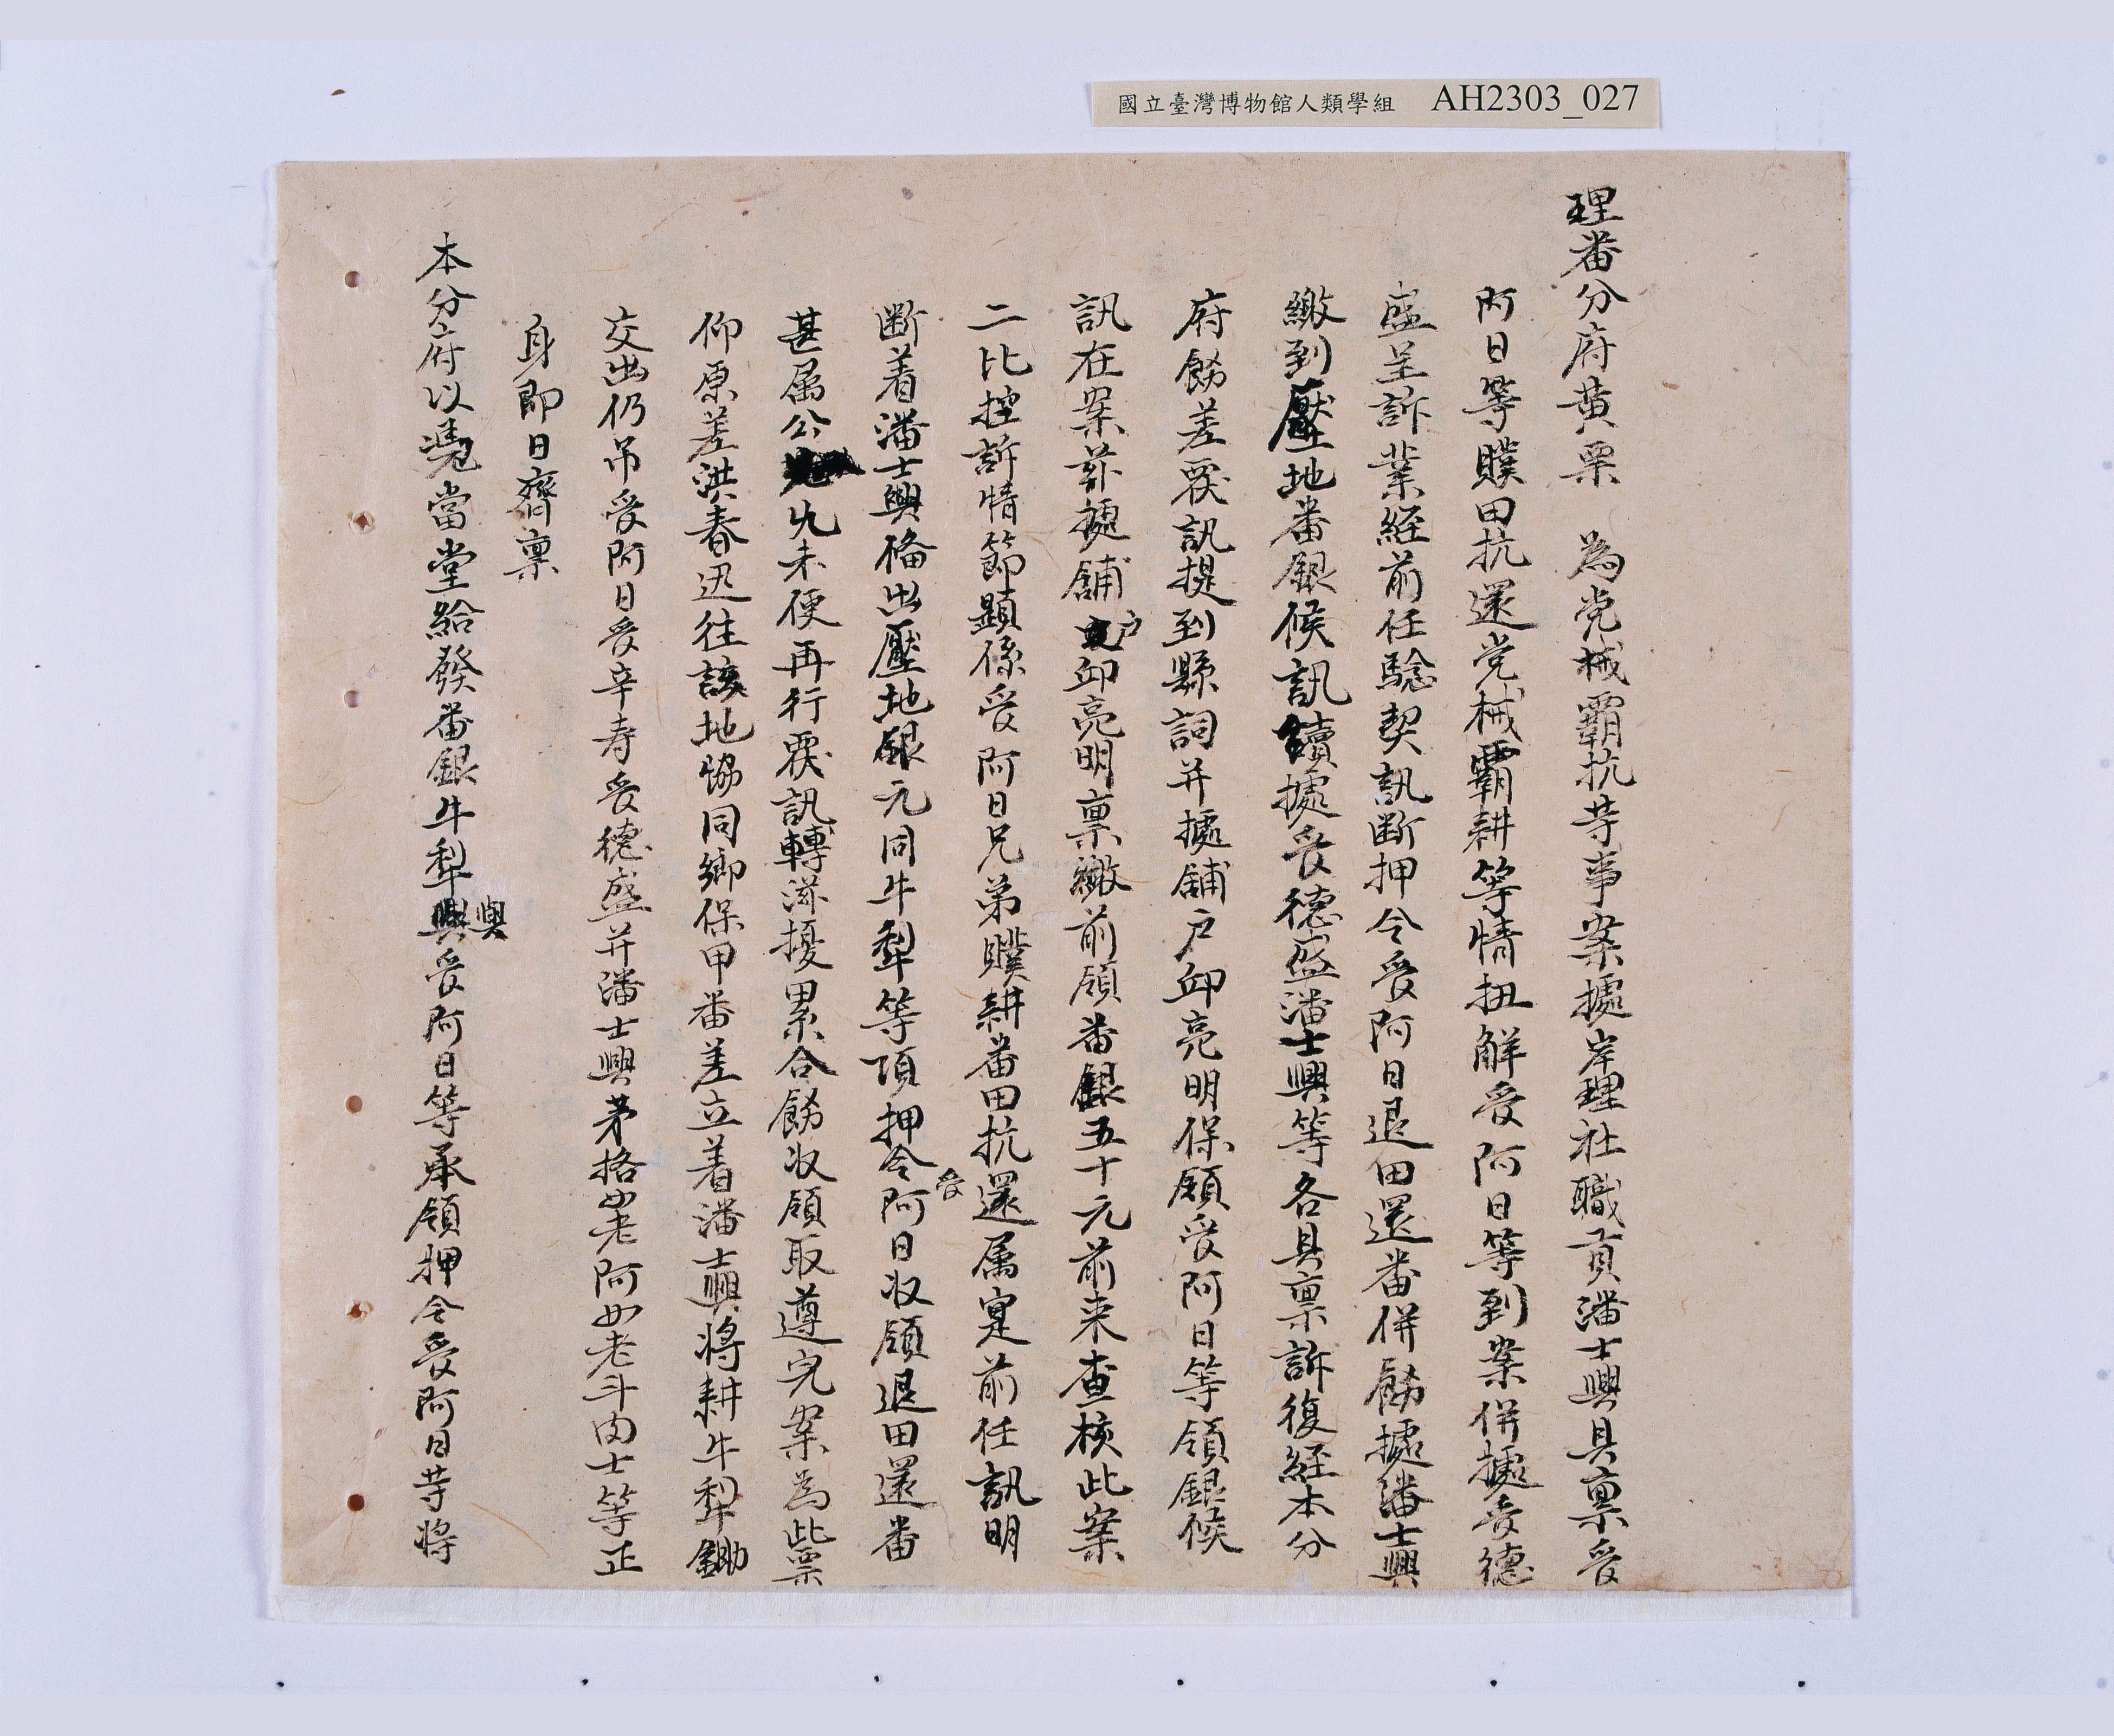 國立臺灣博物館人類學組 AH2303_027
理番分府黄票 為党械霸抗等事案據岸理社職貢潘士興具禀受
阿日等贌田抗還党械霸耕等情扭解受阿日等到案併據受德
盛呈訴業経前任騐契訊断押令受阿日退田還番併飭據潘士興
繳到壓地番銀候訊續據受德盛潘士興等各具禀訴復経本分
府飭差覆訊提到縣詞并據舖户邱亮明保領受阿日等領銀候
訊在案茲據舖户邱亮明禀繳前領番銀五十元前来查核此案
二比控訴情節顯係受阿日兄弟贌耕番田抗還属寔前任訊明
断着潘士興備出壓地銀元同牛犁等項押令受阿日収領退田還番
甚属公允未便再行覆訊轉滋擾累合飭収領取遵完案為此票
仰原差洪春迅往該地協同鄉保甲番差立着潘士興将耕牛犁鋤
交出仍吊受阿日受辛寿受德盛并潘士興茅格买老阿四老斗内士等正
身即日齊禀
本分府以凴當堂給發番銀牛犁與受阿日等承領押令受阿日等将